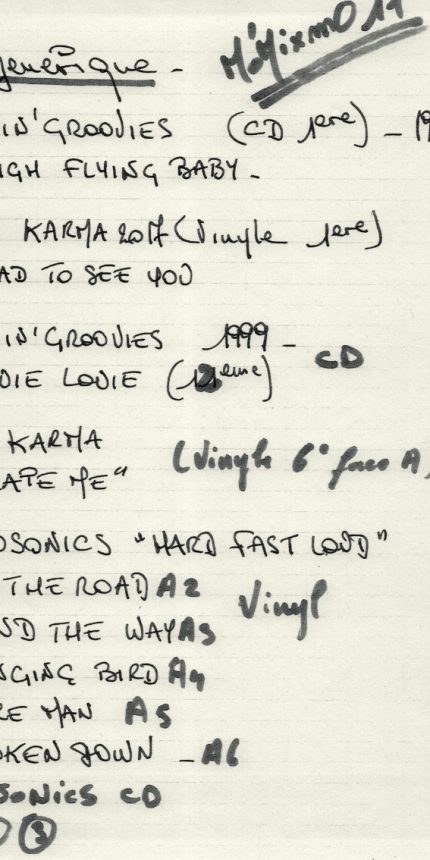 M'Mixmo 11
générique -
IN' GROOVIES (CD 1ère) - 19
IGH FLYING BABY -
KARMA 2017 (Vinyle 1ère)
AD TO SEE YOU
IN' GROOVIES 1999 -
DIE LOUIE (12ème) CD
KARMA
ATE ME" (Vinyle 6° face A)
OSONICS "HARD FAST LOUD"
THE ROAD A2
Vinyl
ND THE WAY A3
NGING BIRD A4
RE MAN A5
OKEN DOWN - A6
SONICS CD
③